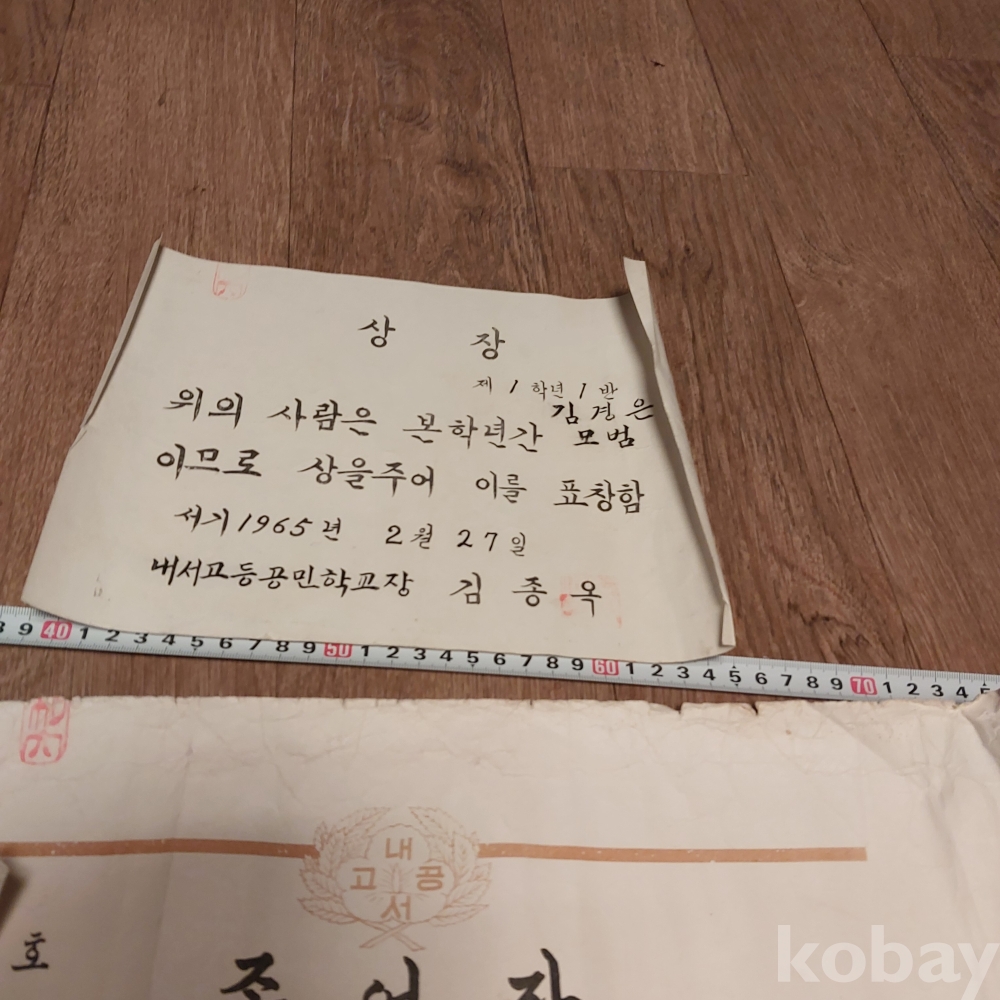 상 장
제 1 학년 1 반
김경은
위의 사람은 본학년간 모범
이므로 상을주어 이를 표창함
서기 1965년 2월 27일
내서고등공민학교장 김종옥
9 40 1 2 3 4 5 6 7 8 9 50 1 2 3 4 5 6 7 8 9 60 1 2 3 4 5 6 7 8 9 70 1 2 3 4
내
고 공
서
호
졸업장
kobay